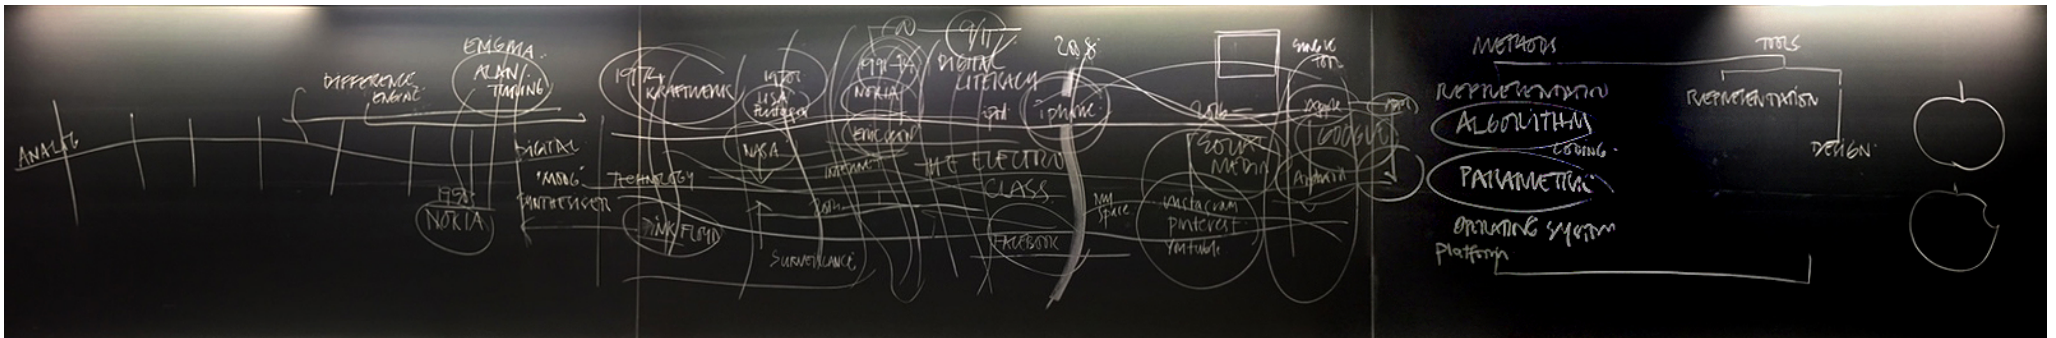 ANALOG
DIFFERENCE
ENGINE
ENIGMA
ALAN
TURING
DIGITAL
"MOOG"
SYNTHESISER
NOKIA
1974
KRAFTWERK
TECHNOLOGY
PINK FLOYD
LISA
NASA
SURVEILLANCE
1991-
NOKIA
Ericsson
INTERNET
9/11
DIGITAL
LITERACY
ipod
THE ELECTRO
CLASS
FACEBOOK
iphone
My
Space
SOCIAL
MEDIA
instagram
pinterest
Youtube
Apple
GOOGLE
METHODS
REPRESENTATION
ALGORITHM
CODING
PARAMETRIC
OPERATING SYSTEM
Platform
TOOLS
REPRESENTATION
DESIGN